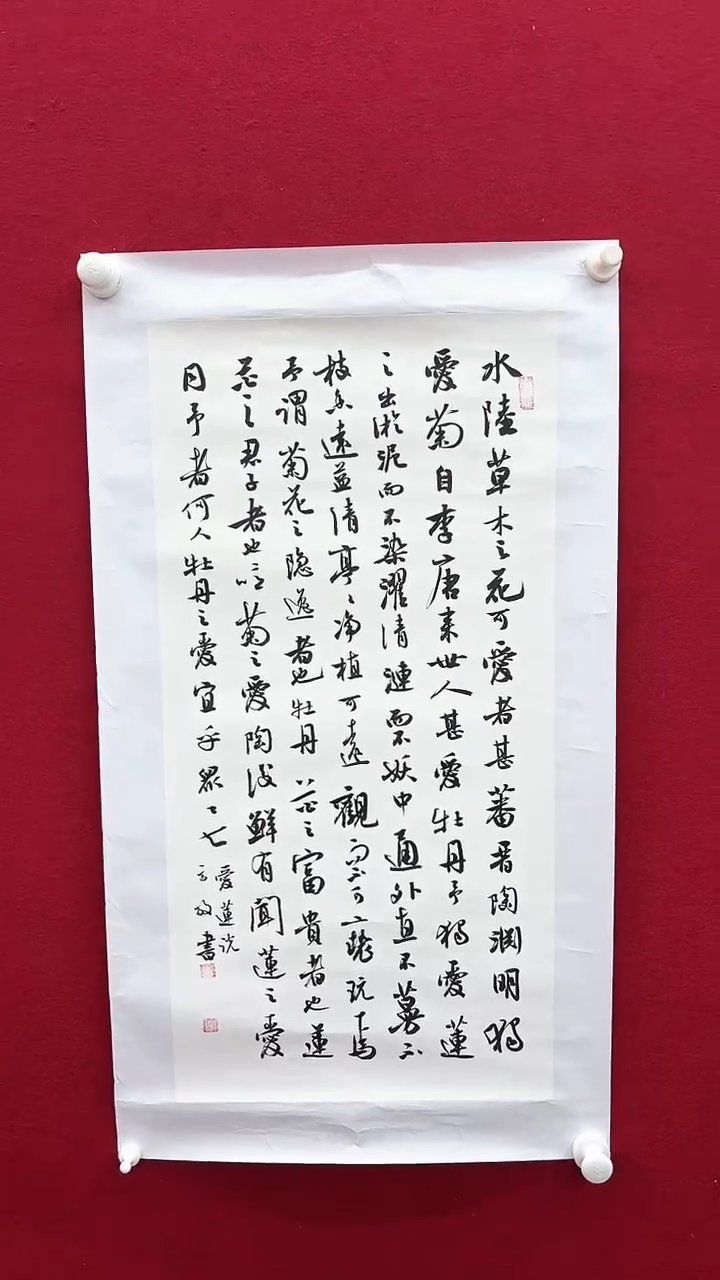 水陸草木之花可愛者甚蕃晋陶渊明獨
愛菊自李唐来世人甚愛牡丹予獨愛蓮
之出淤泥而不染濯清漣而不妖中通外直不蔓不
枝香遠益清亭〻净植可遠觀而不可褻玩焉
予謂菊花之隐逸者也牡丹花之富貴者也蓮
花之君子者也噫菊之愛陶後鮮有聞蓮之愛
同予者何人牡丹之愛宜乎眾矣
愛蓮说
書